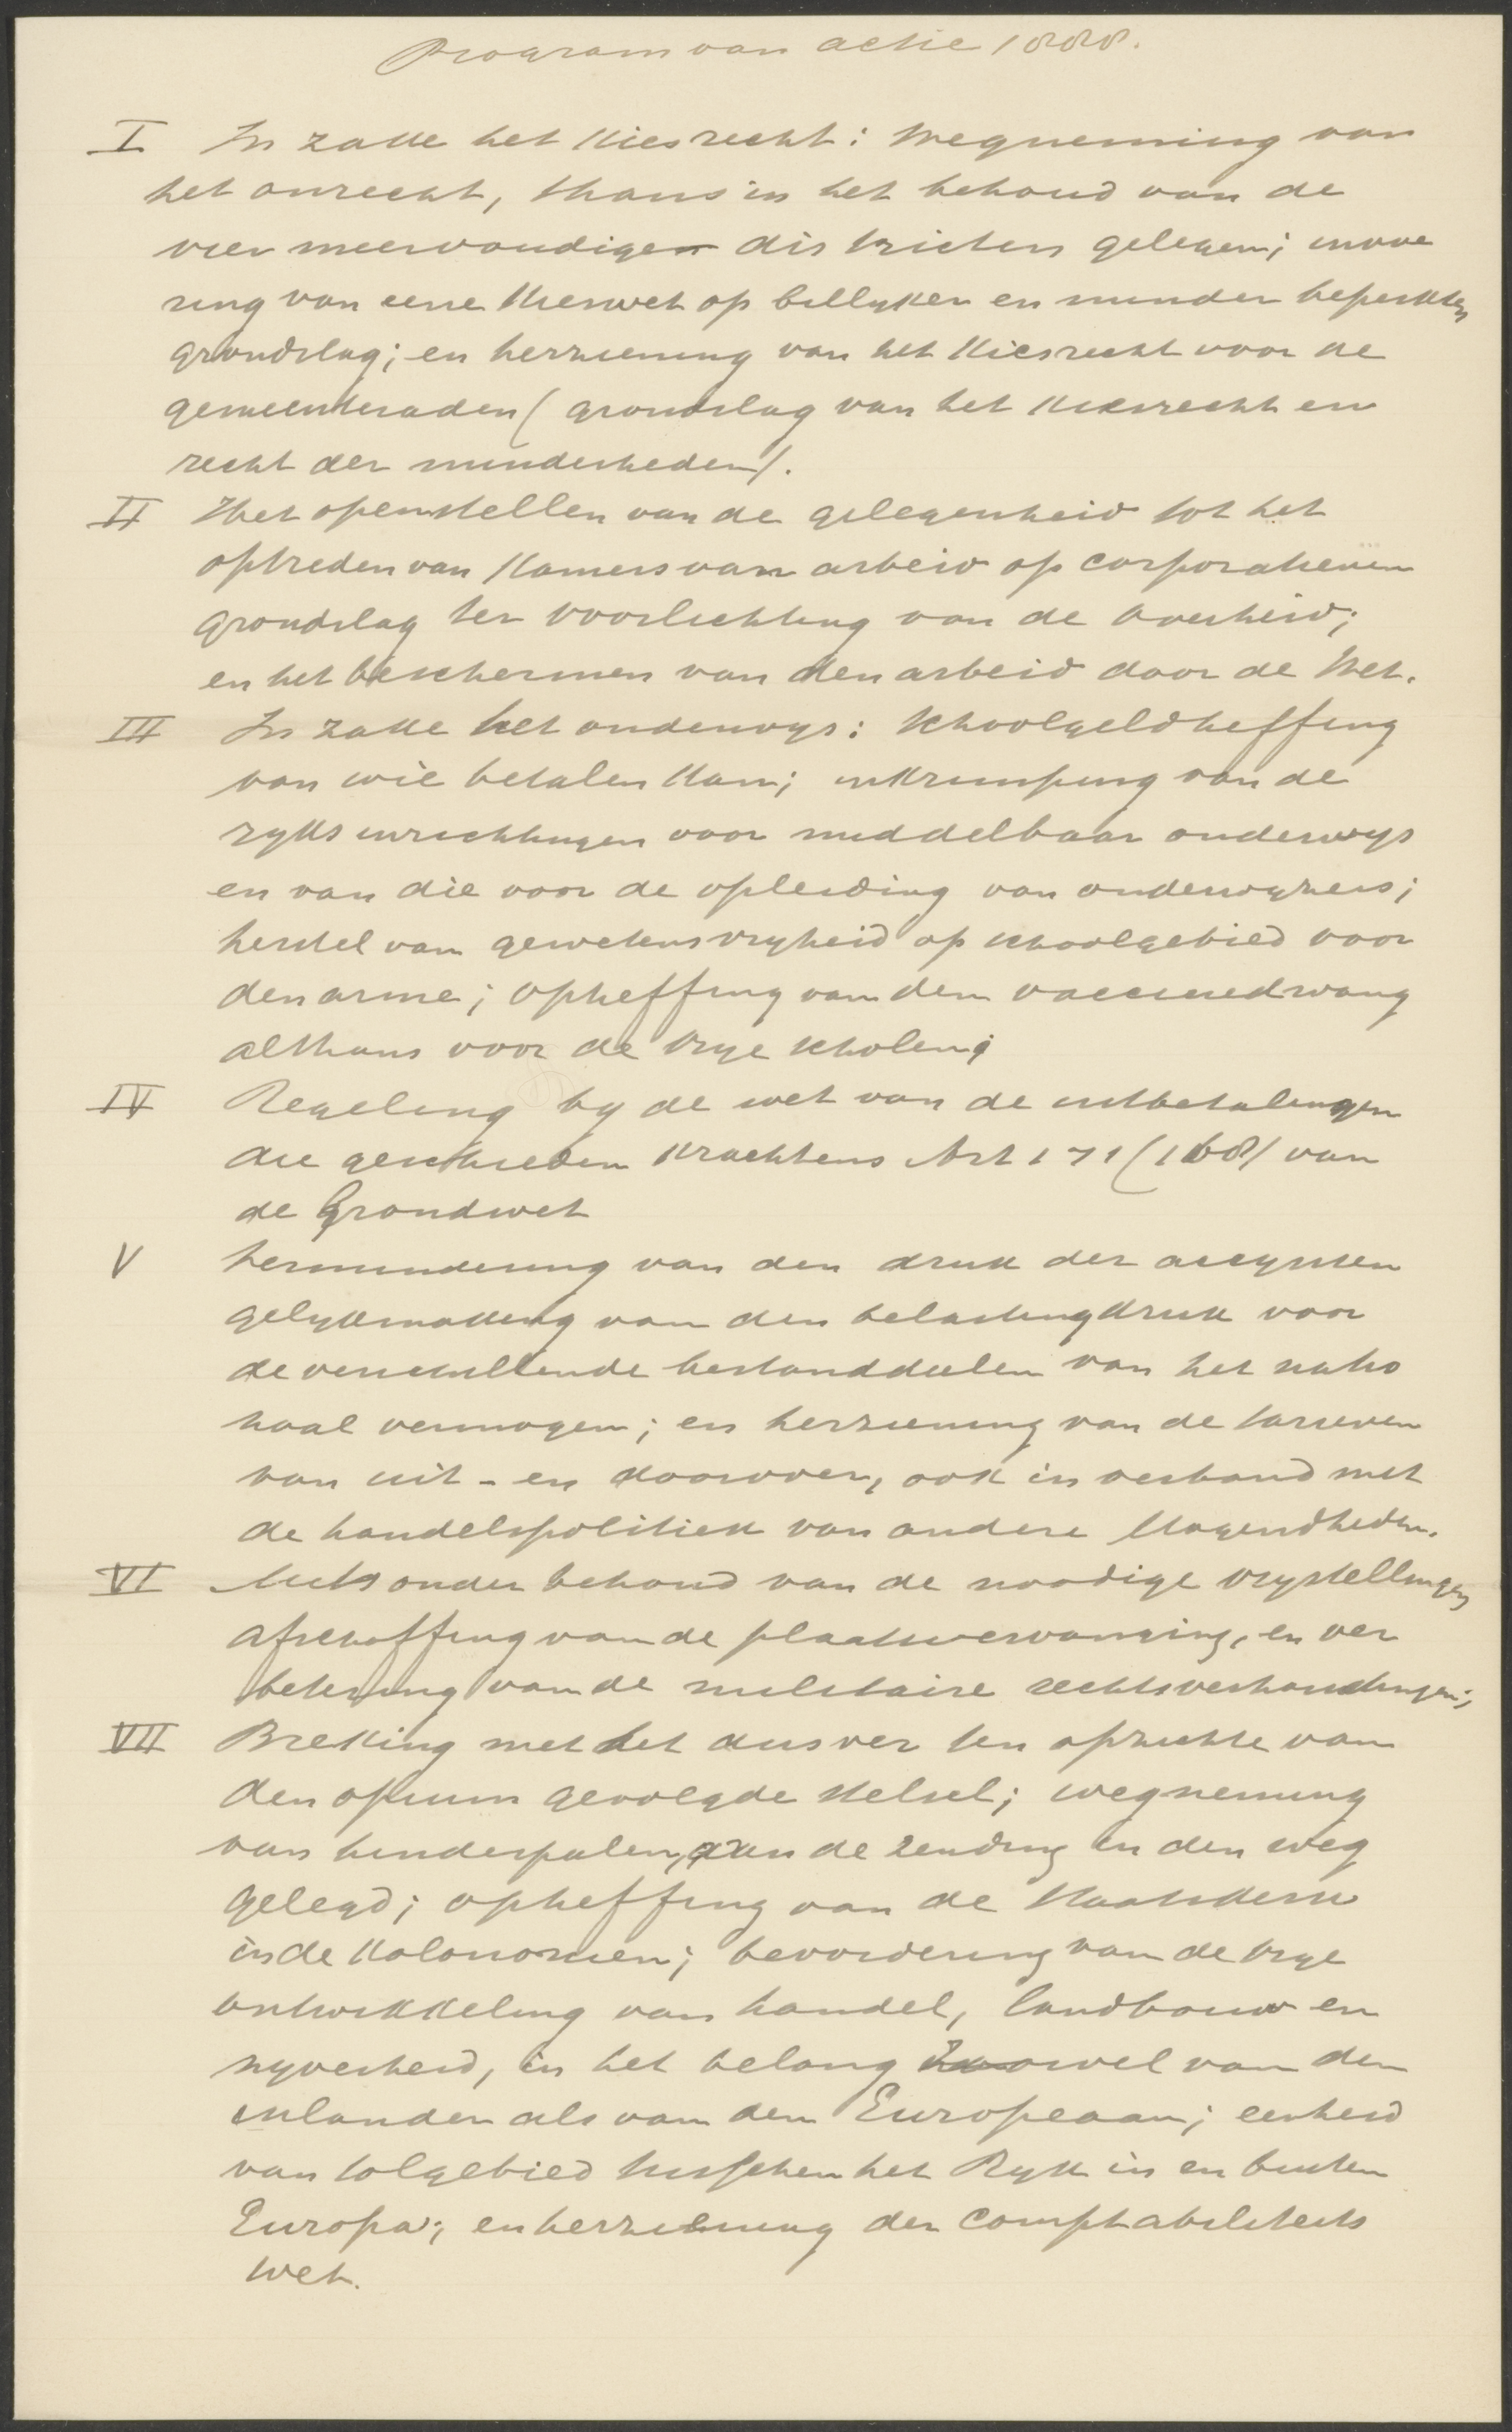 Program van actie 1888.
I In zake het Kiesrecht: Wegneming van
het onrecht, thans in het behoud van de
vier meervoudige districten gelegen; invoe
ring van eene Kieswet op billyken en minder beperkten
grondslag; en herziening van het Kiesrecht voor de
gemeenteraden (grondslag van het Kiesrecht en
recht der minderheden).
II Het openstellen van de gelegenheid tot het
optreden van Kamers van arbeid op corporatieven
grondslag ter voorlichting van de Overheid;
en het beschermen van den arbeid door de Wet.
III In zake het onderwys: Schoolgeldheffing
van wie betalen kan; inkrimping van de
ryksinrichtingen voor middelbaar onderwys
en van die voor de opleiding van onderwyzers;
herstel van gewetensvryheid op schoolgebied voor
den arme; opheffing van den vaccinedwang
althans voor de vrye scholen;
IV Regeling by de wet van de uitbetalingen
die geschieden krachtens Art 171 (168) van
de Grondwet
V Vermindering van den druk der accynsen
gelykmaking van den belastingdruk voor
de verschillende bestanddeelen van het natio
naal vermogen; en herziening van de tarieven
van uit- en doorvoer, ook in verband met
de handelspolitiek van andere Mogendheden.
VI Mits onder behoud van de noodige vrystellingen
afschaffing van de plaatsvervanging, en ver
betering van de militaire rechtsverhoudingen;
VII Breking met het dusver ten opzichte van
den opium gevolgde stelsel; wegneming
van hinderpalen, aan de zending in den weg
gelegd; opheffing van de Staatskerk
in de Kolonomien; bevordering van de vrye
ontwikkeling van handel, landbouw en
nyverheid, in het belang zoowel van den
inlander als van den Europeaan; eenheid
van tolgebied tusschen het Ryk in en buiten
Europa; en herziening der comptabiliteits
wet.